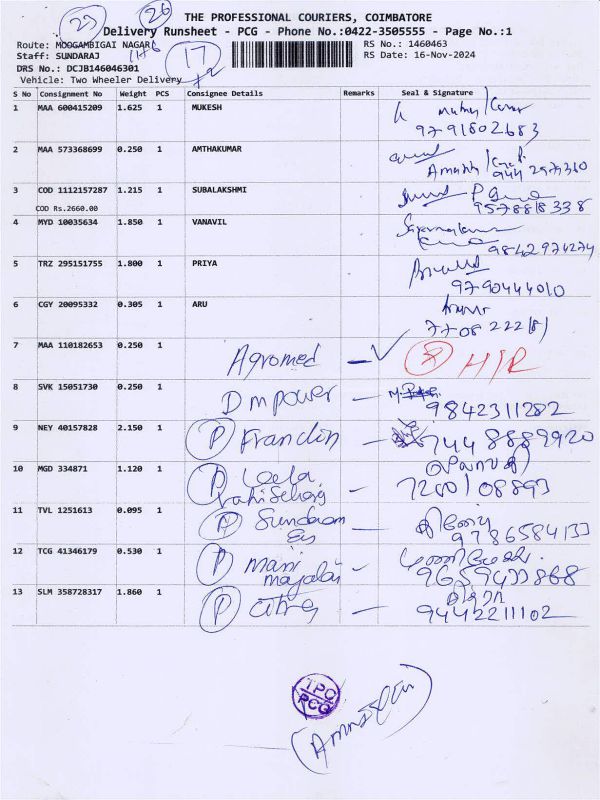 23 26
THE PROFESSIONAL COURIERS, COIMBATORE
Delivery Runsheet - PCG - Phone No.:0422-3505555 - Page No.:1
Route: MOOGAMBIGAI NAGAR RS No.: 1460463
Staff: SUNDARAJ 17 RS Date: 16-Nov-2024
DRS No.: DCJB146046301
Vehicle: Two Wheeler Delivery
S No Consignment No Weight PCS Consignee Details Remarks Seal & Signature
1 MAA 600415209 1.625 1 MUKESH
9791802683
2 MAA 573368699 0.250 1 AMTHAKUMAR
3 COD 1112157287 1.215 1 SUBALAKSHMI
COD Rs.2660.00 9578818338
4 MYD 10035634 1.850 1 VANAVIL
9842974274
5 TRZ 295151755 1.800 1 PRIYA
9790444010
6 CGY 20095332 0.305 1 ARU
7708222181
7 MAA 110182653 0.250 1
Agromed
8 SVK 15051730 0.250 1
Dmpower 9842311282
9 NEY 40157828 2.150 1
P Franclin 7448889920
10 MGD 334871 1.120 1
P Leela 7200108893
11 TVL 1251613 0.095 1
P Sundaram 9786584133
12 TCG 41346179 0.530 1
P Mani 9659433868
13 SLM 358728317 1.860 1
P 9442211102
TPC
PCG